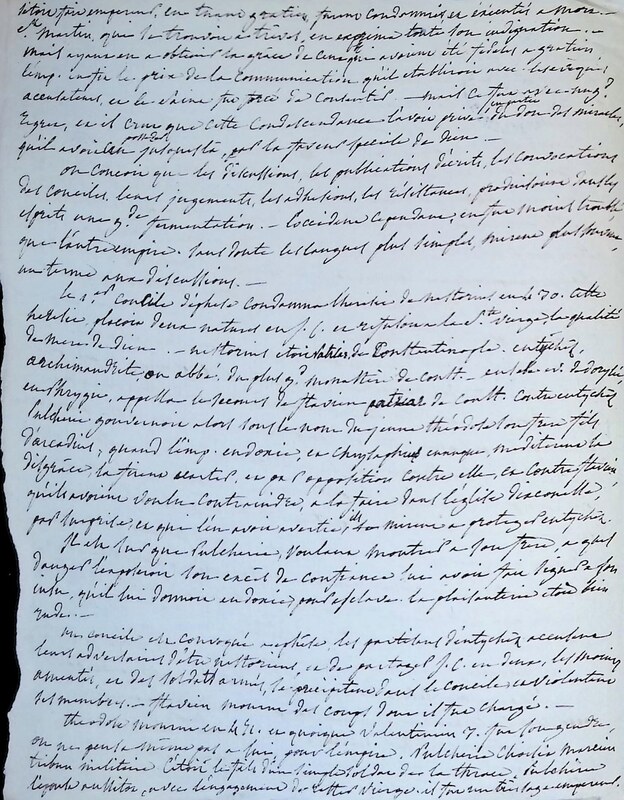 étoit fait empereur, en trans gratien, furent condamnés et exécutés a mort. —
St. Martin, que se trouvoit a trèves, en exprima toute son indignation. —
mais ayant en a obtenir la grâce de ceux qui avoient été fidèles a gratien
l'emp. en fit le prix de la Communication qu'il établiroit avec les évêques
accusateurs, et le saint fut forcé de consentir — mais ce fut avec un gd
regret, et il crut que cette Condescendance l'avoit privé en partie du don des miracles,
qu'il avoit possédé jusques là, par la faveur spéciale de dieu —
on conçoit que les discussions, les publications d'écrits, les convocations
des conciles, leurs jugements, les adhésions, les résistances, produisoient dans les
esprits une gde fermentation. — l'occident cependant, en fut moins troublé
que l'autre empire. sans doute les langues plus simples, mirent plus souvent
un terme aux discussions. —
le 1er Concile d'éphèse condamna l'hérésie de nestorius en 430. Cette
hérésie plaçoit deux natures en J. C. et refusoit a la Ste vierge la qualité
de mère de dieu. — nestorius étoit de Constantinople. eutychez,
archimandrite ou abbé du plus gd monastère de Constt — eusèbe év. de dorylée,
en Phrygie, appella le secours de flavien de Constt. contre eutychez
Pulcherie gouvernoit alors sous le nom du jeune théodose son frère fils
d'arcadius; quand l'imp. eudoxie, et chrysaphius eunuque, méditèrent la
disgrace la firent écarter, et par opposition contre elle, et contre flavien
qu'ils avoient voulu contraindre, a la faire dans l'église diaconesse,
par surprise, et que l'en avoit avertie, ils se mirent a protéger eutychez.
On lit que Pulcherie, voulant montrer a son frère, a quel
danger l'exposoit son excès de confiance lui avoit fait signer a son
insu, qu'il lui donnoit eudoxie, pour esclave. la plaisanterie étoit bien
rude. —
un concile est convoqué a éphèse. les partisans d'eutychez accusent
leurs adversaires d'être nestoriens, et de partager J. C. en deux, les moines
ameutés, et des soldats armés, se précipitent dans le concile, et violentent
les membres. — flavien mourut des coups dont il fut chargé. —
théodose mourut en et quoique Valentinien 3. fut son gendre,
on ne pensa même pas a lui, pour l'empire. Pulcherie choisit Marcien
tribun militaire c'étoit le fils d'un simple soldat de la thrace, Pulcherie
l'épousa aussitôt, avec l'engagement de rester vierge. il fut un très sage empereur.